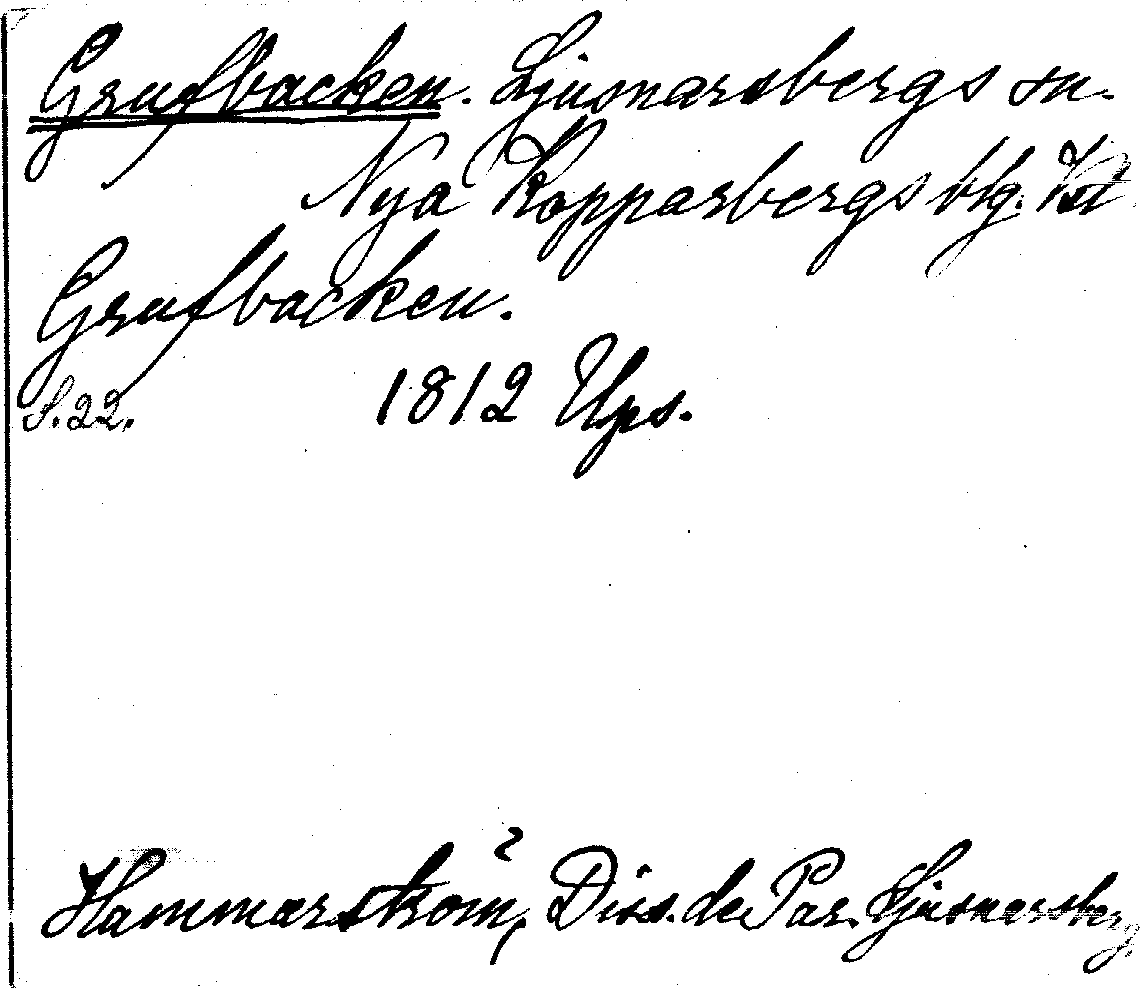 Grufbacken. Ljusnarsbergs sn.
Nya Kopparbergs blg. Vstl
Grufbacken.
S. 22. 1812 Ups.
Hammarström, Diss. de Par. Ljusnarsberg.